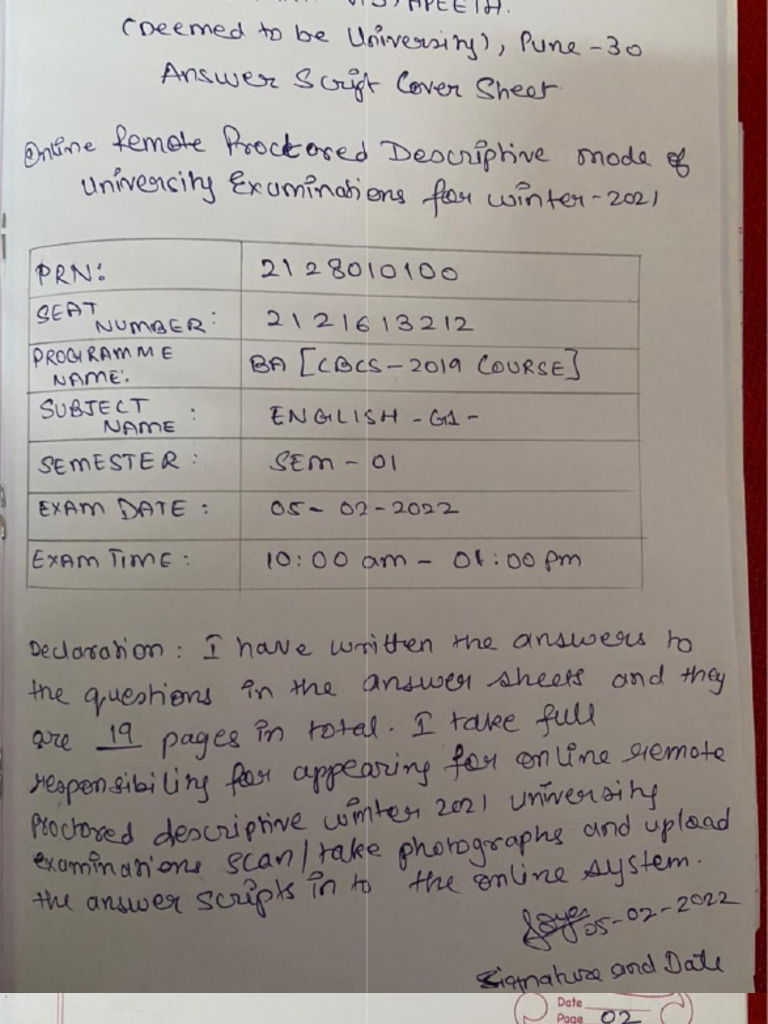 VIDYAPEETH.
(Deemed to be University), Pune-30
Answer Script Cover Sheet
Online Remote Proctored Descriptive mode of
University Examinations for winter-2021
PRN: 2128010100
SEAT NUMBER: 2121613212
PROGRAMME NAME: BA [CBCS-2019 COURSE]
SUBJECT NAME: ENGLISH -G1-
SEMESTER: SEM-01
EXAM DATE: 05-02-2022
EXAM TIME: 10:00 am - 01:00 pm
Declaration: I have written the answers to
the questions in the answer sheets and they
are 19 pages in total. I take full
responsibility for appearing for online remote
Proctored descriptive winter 2021 university
examinations scan/take photographs and upload
the answer scripts in to the online system.
05-02-2022
Signature and Date
Date
Page 02